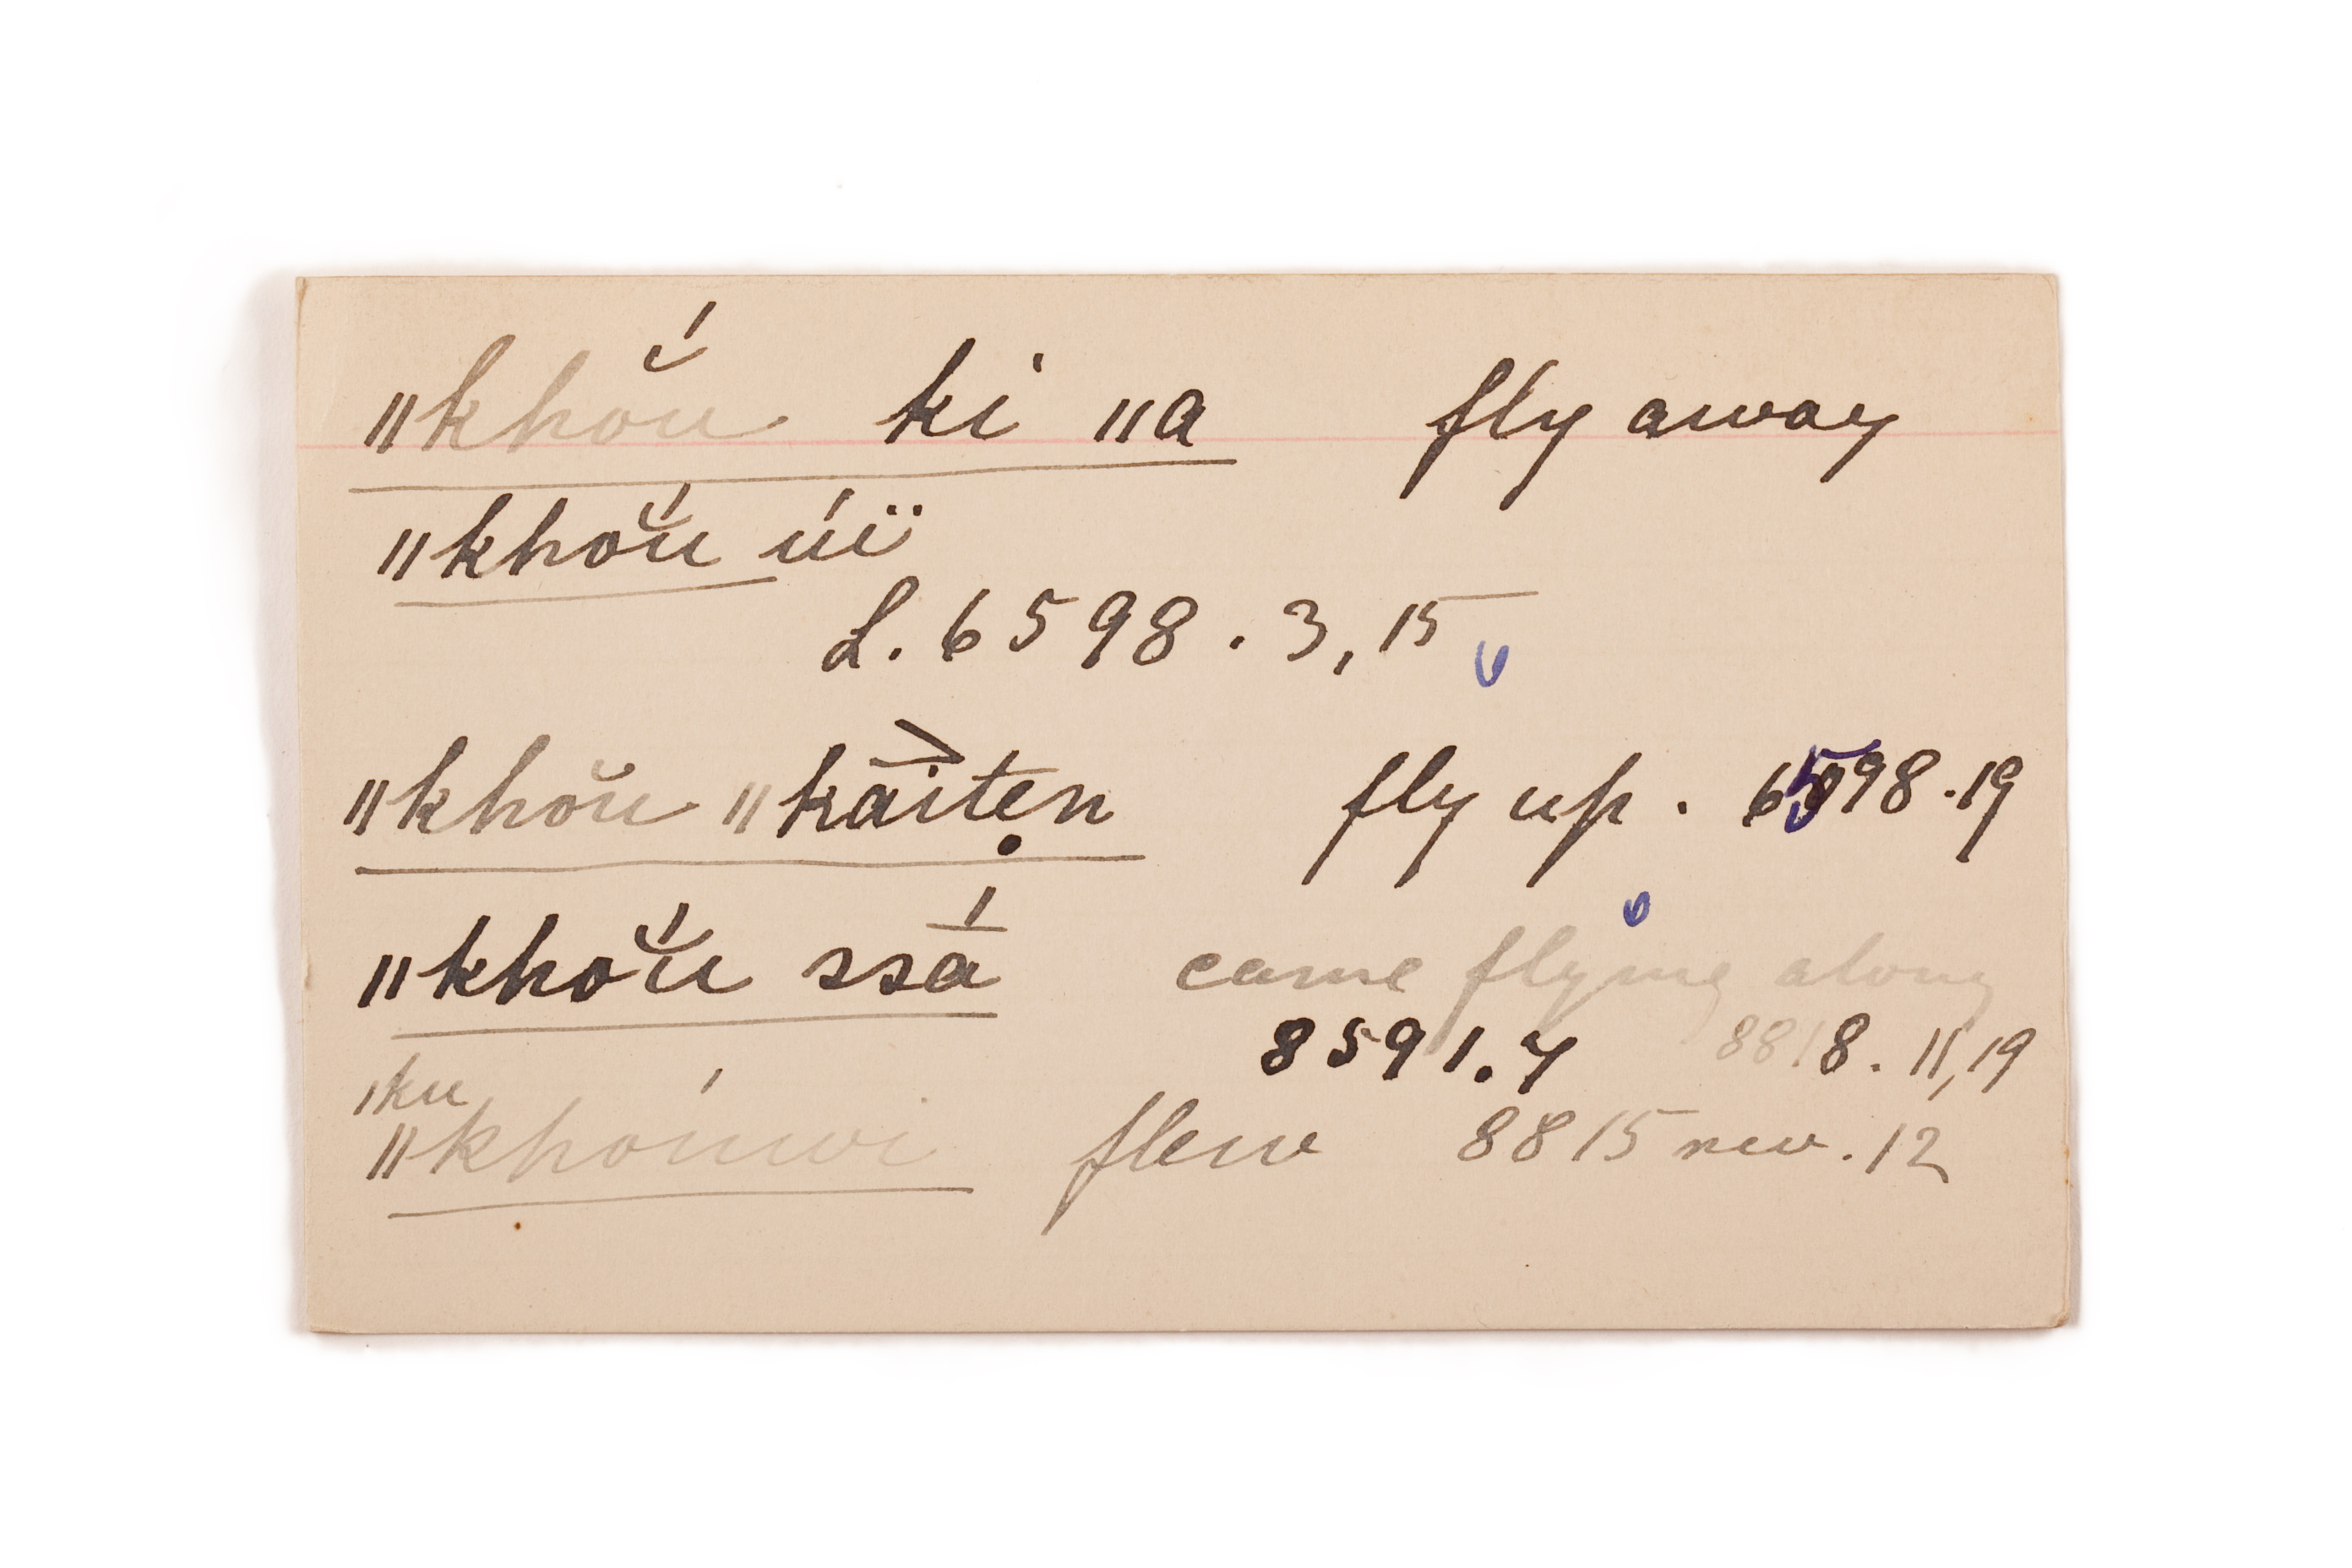 ǁkhoŭ́ ki ǁa fly away
ǁkhoŭ́ úï
L. 6598 . 3, 15
ǁkhoŭ ǁkāi̖teṇ fly up . 6598 . 19
ǁkhoŭ́ ssā́ came flying along
8591. 7 8818. 11, 19
ǀku
ǁkhóuwi flew 8815 rev. 12